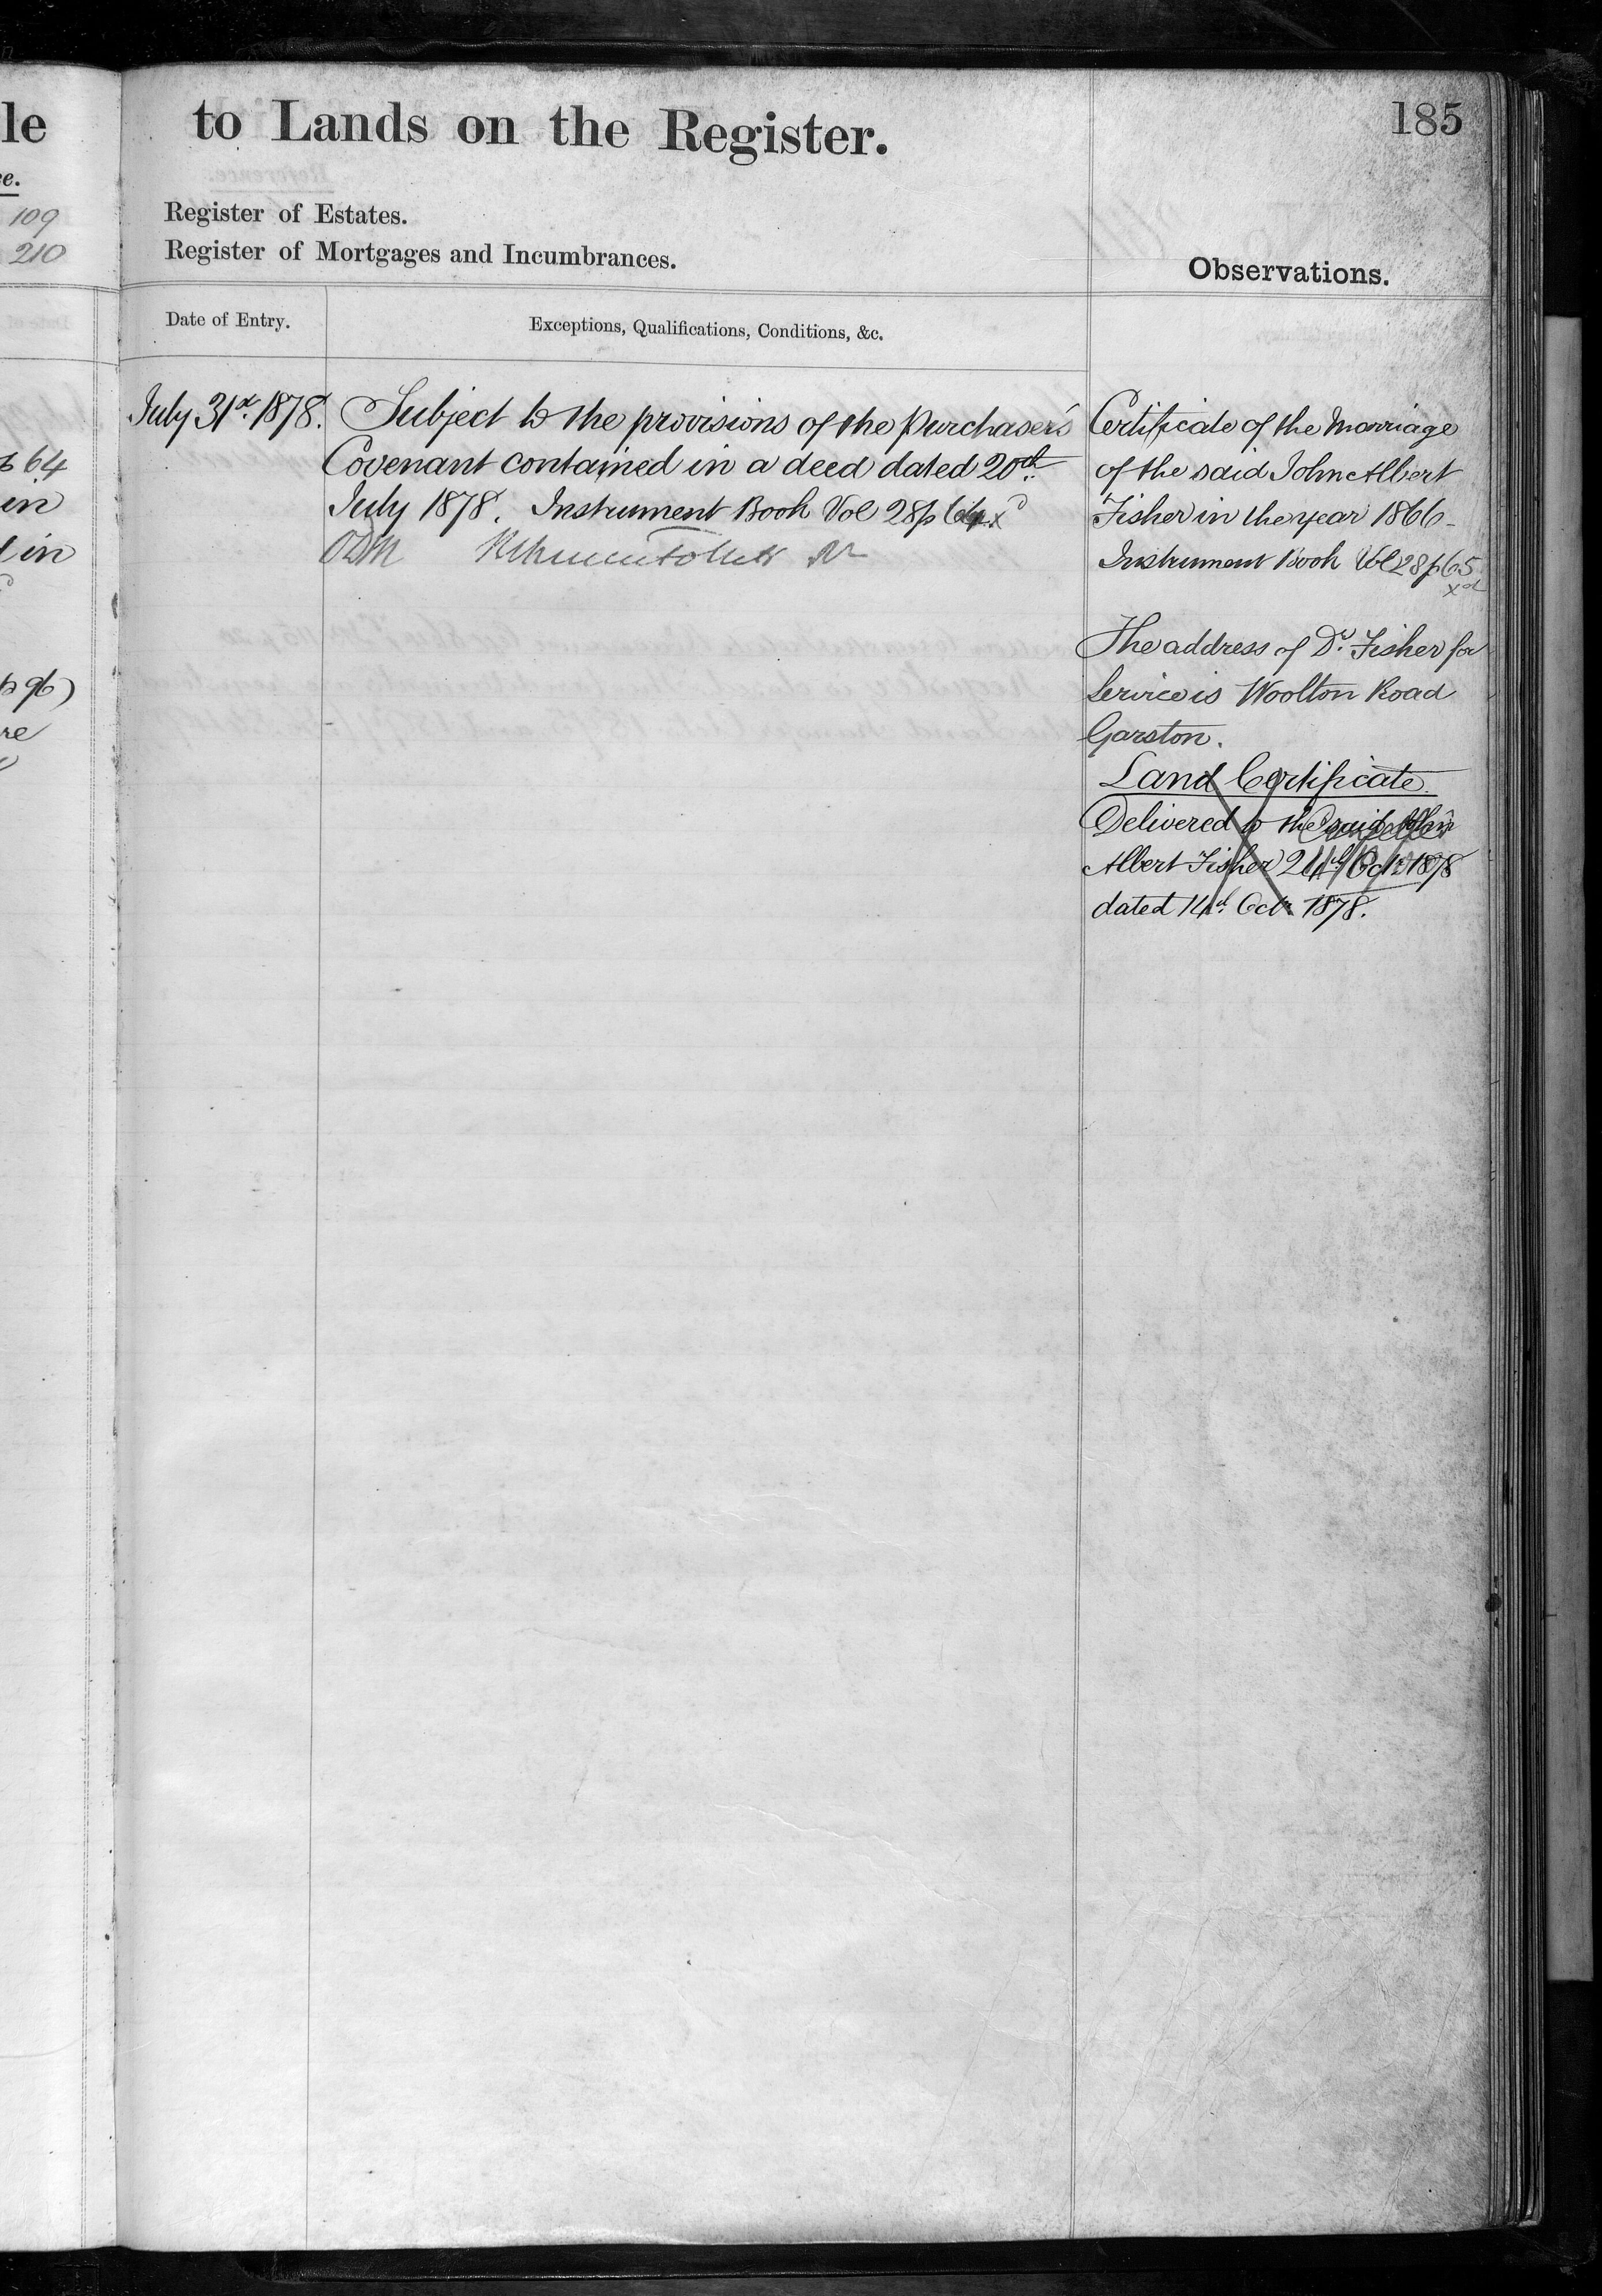 le
to Lands on the Register.
185
ce.
109
210
Register of Estates.
Register of Mortgages and Incumbrances.
Observations.
Date of Entry.
Exceptions, Qualifications, Conditions, &c.
p 64
in
in
p 96)
re
July 31st. 1878.
Subject to the provisions of the Purchaser's
Covenant contained in a deed dated 20th
July 1878. Instrument Book Vol 28 p 64 xd
Certificate of the Marriage
of the said John Albert
Fisher in the year 1866
Instrument Book Vol 28 p 65
xd
The address of Dr. Fisher for
Service is Woolton Road
Garston.
Land Certificate.
Delivered to the said John
Albert Fisher Oct 1878
dated 14th Octr 1878.